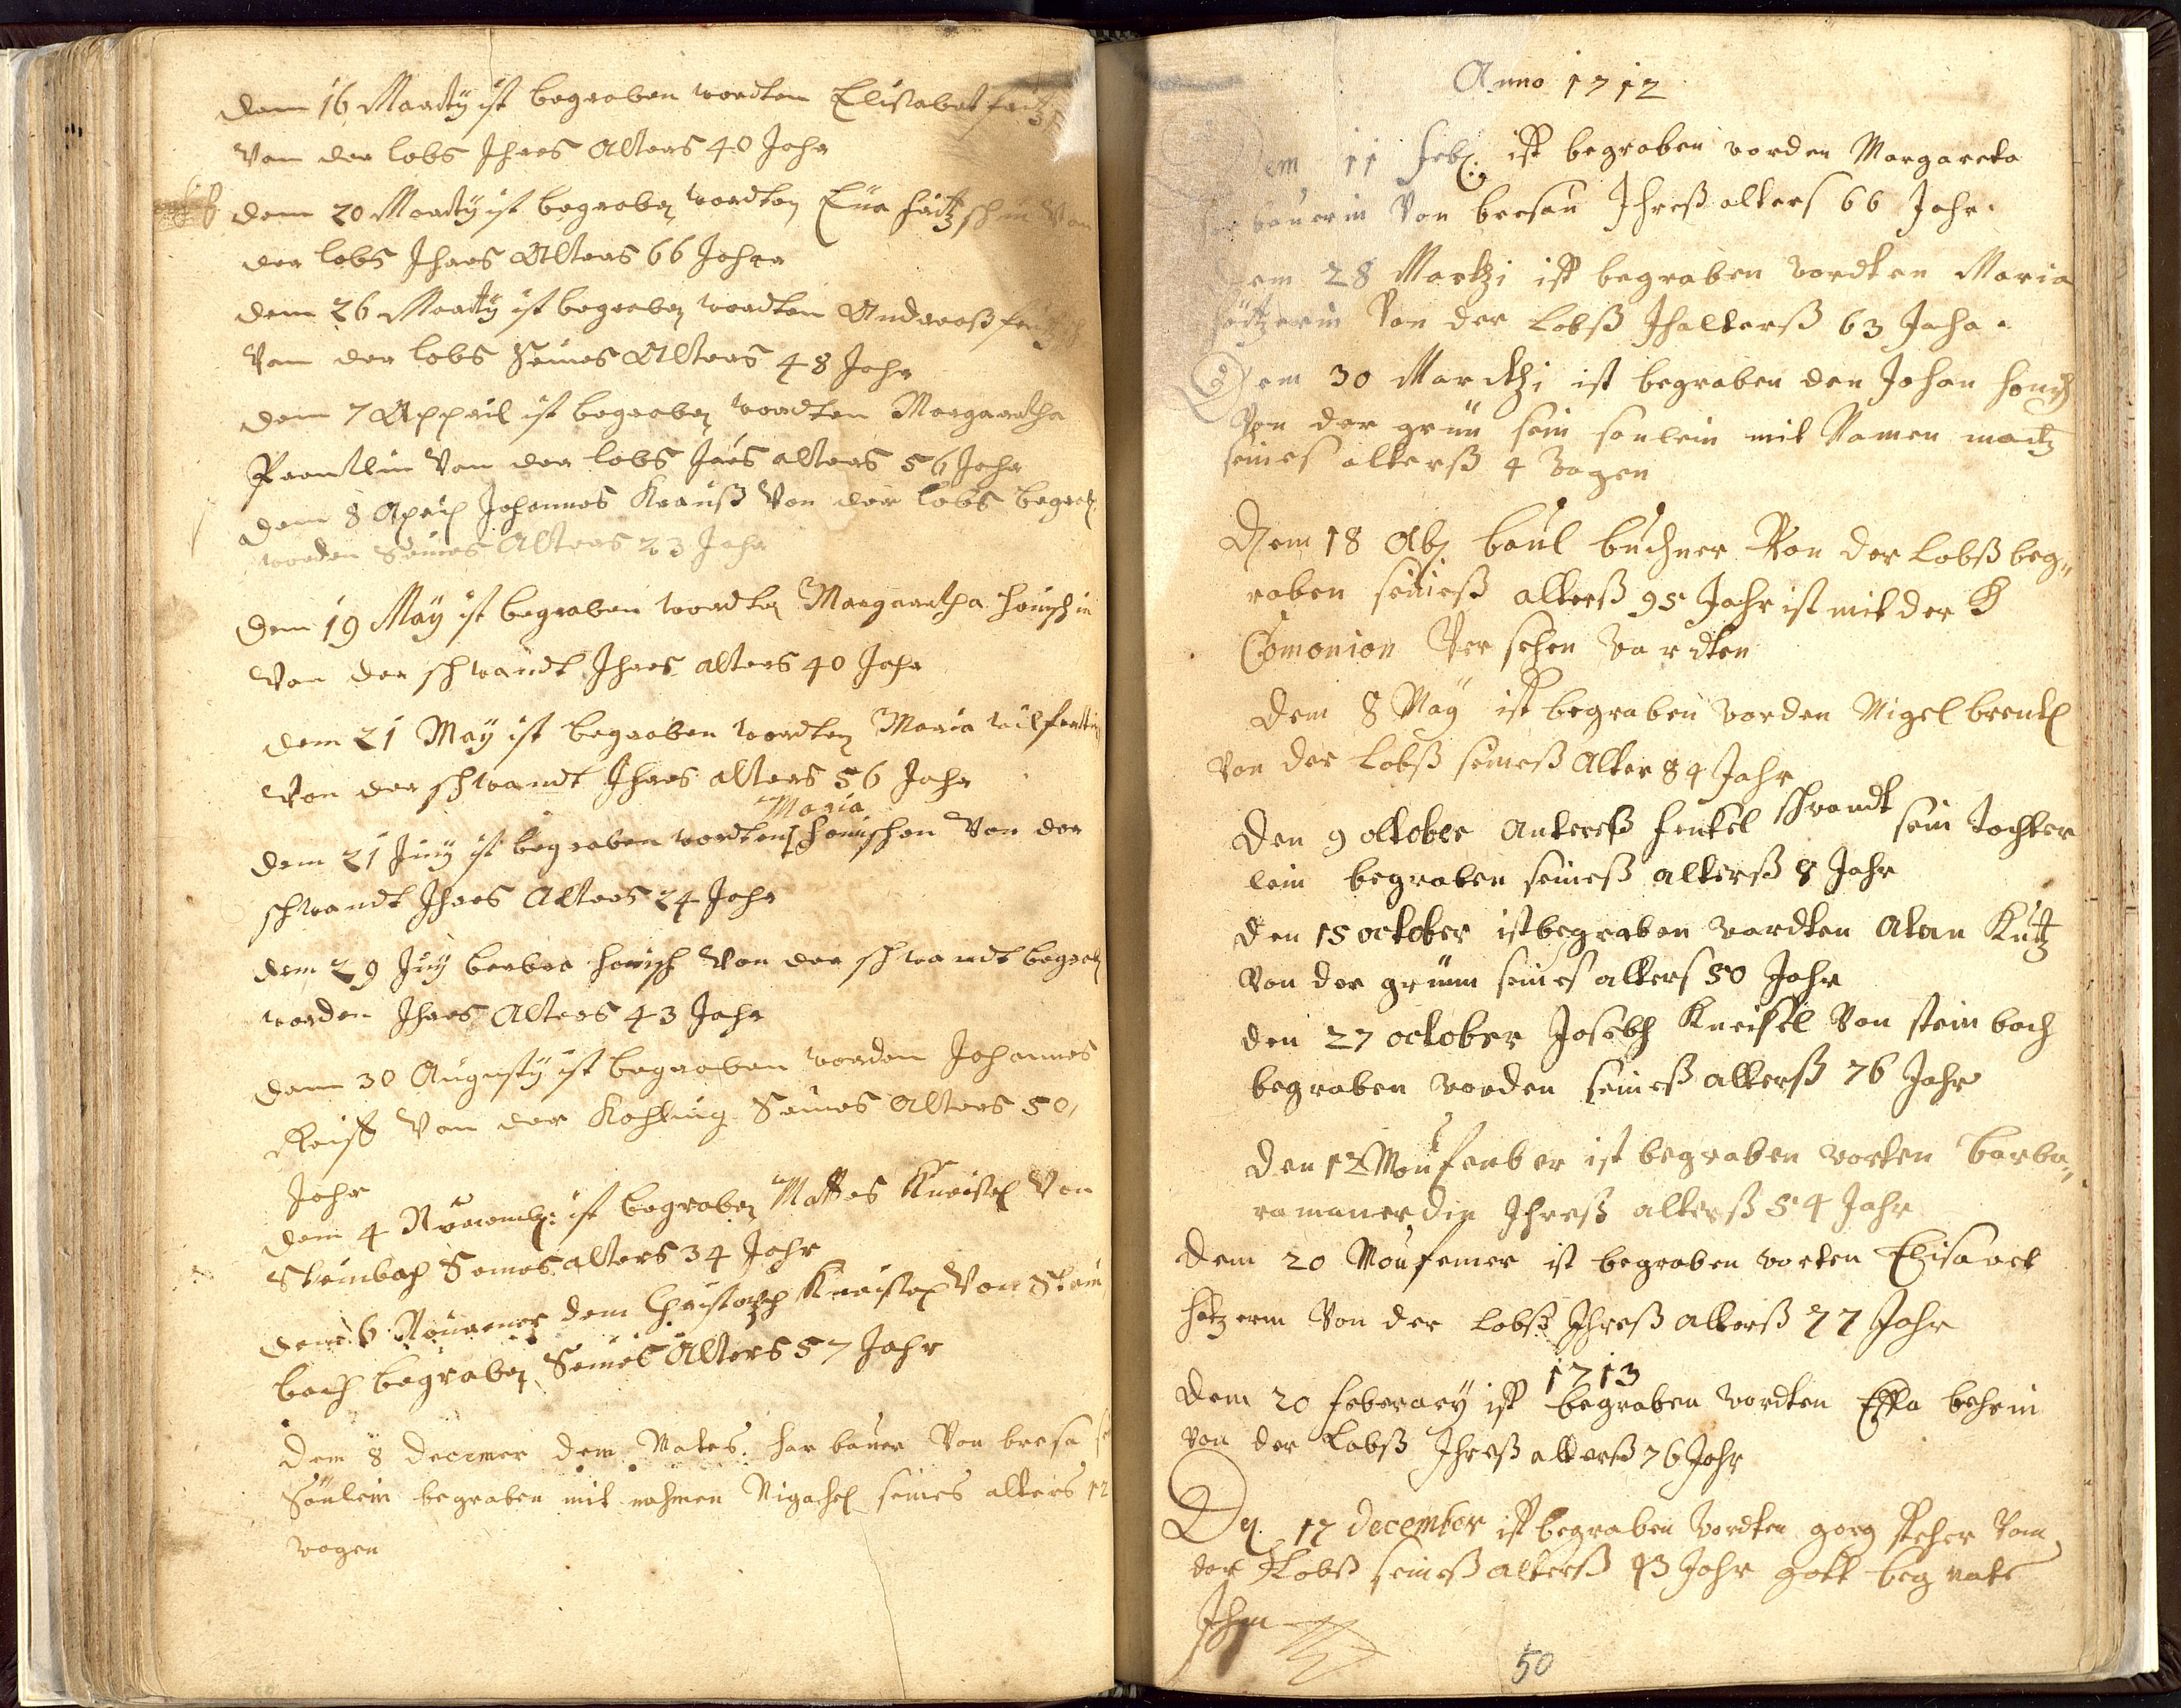 dem 16 Marty ist begraben wordten Elisabet
Von der lobs Ihres Alters 40 Jahr
dem 20 Marty ist begraben wordten Eua hützschin Von
der lobs Ihres Alters 66 Jahr
dem 26 Marty ist begraben wordten Andreaß
Von der lobs Seines Alters 48 Jahr
dem 7 Appril ist begraben wordten Margaretha
Von der lobs Jres alters 56 Jahr
dem 8 April Johannes Krauß Von der lobs begrab
worden Seines Alters 23 Jahr
Dem 19 May ist begraben wordten Margaretha honischin
Von der schwandt Ihres alters 40 Jahr
dem 21 May ist begraben wordten Maria
Von der schwandt Ihres alters 56 Jahr
Maria
dem 21 Juny ist begraben wordten honischen Von der
schwandt Ihres Alters 24 Jahr
dem 29 Juny barbra honisch Von der schwandt begrab
worden Ihres Alters 43 Jahr
dem 30 Augusty ist begraben worden Johannes
Von der Kohling Seines Alters 50,
Jahr
dem 4 Nouemb: ist begraben Mattes Kneissel Von
Steinbach Seines alters 34 Jahr
dem 6 Nouemer dem Christoph Kneissel Von Stein
bach begraben Seines Alters 57 Jahr
dem 8 decemer dem Mates har bauer Von bresa
Sönlein begraben mit nahmen Migahel seines alters 12
wogen
Anno 1712
em 11 feb: ist begraben worden Margareta
har bauerin Von bresau Ihreß alters 66 Jahr.
Dem 28 Martzi ist begraben wordten Maria
Von der Lobß Ihalterß 63 Jahr.
Dem 30 Marckhi ist begraben den Johan honich
Von der grün sein sonlein mit Namen
seines alterß 4 wogen
Dem 18 Ab baul buchner Von der Lobß beg,,
raben seineß alterß 95 Jahr ist mit der H
Comonion Ver sehen wardten
Dem 8 May ist begraben worden Migel brentl
Von der Lobß seineß Alter 84 Jahr
Den 9 oktober Antereß fenkel schwandt sein tochter
lein begraben seineß alterß 8 Jahr
den 15 october ist begraben wardten Atam Kütz
Von der grünn seines alters 50 Jahr
den 27 october Josebh Kneissel Von stein bach
begraben worden seineß alterß 76 Jahr
den 12 Moufember ist begraben worten barba,,
ra Ihreß alterß 54 Jahr
dem 20 Moufemer ist begraben worten Elisabet
hetzerin Von der lobß Ihreß alterß 77 Jahr
1713
dem 20 feberary ist begraben wordten Effa behrin
Von der Lobß Ihreß alterß 76 Jahr
Den 17 december ist begraben wordten georg Von
der Lobß seineß alterß 93 Jahr gott beg nate
Ihm
50